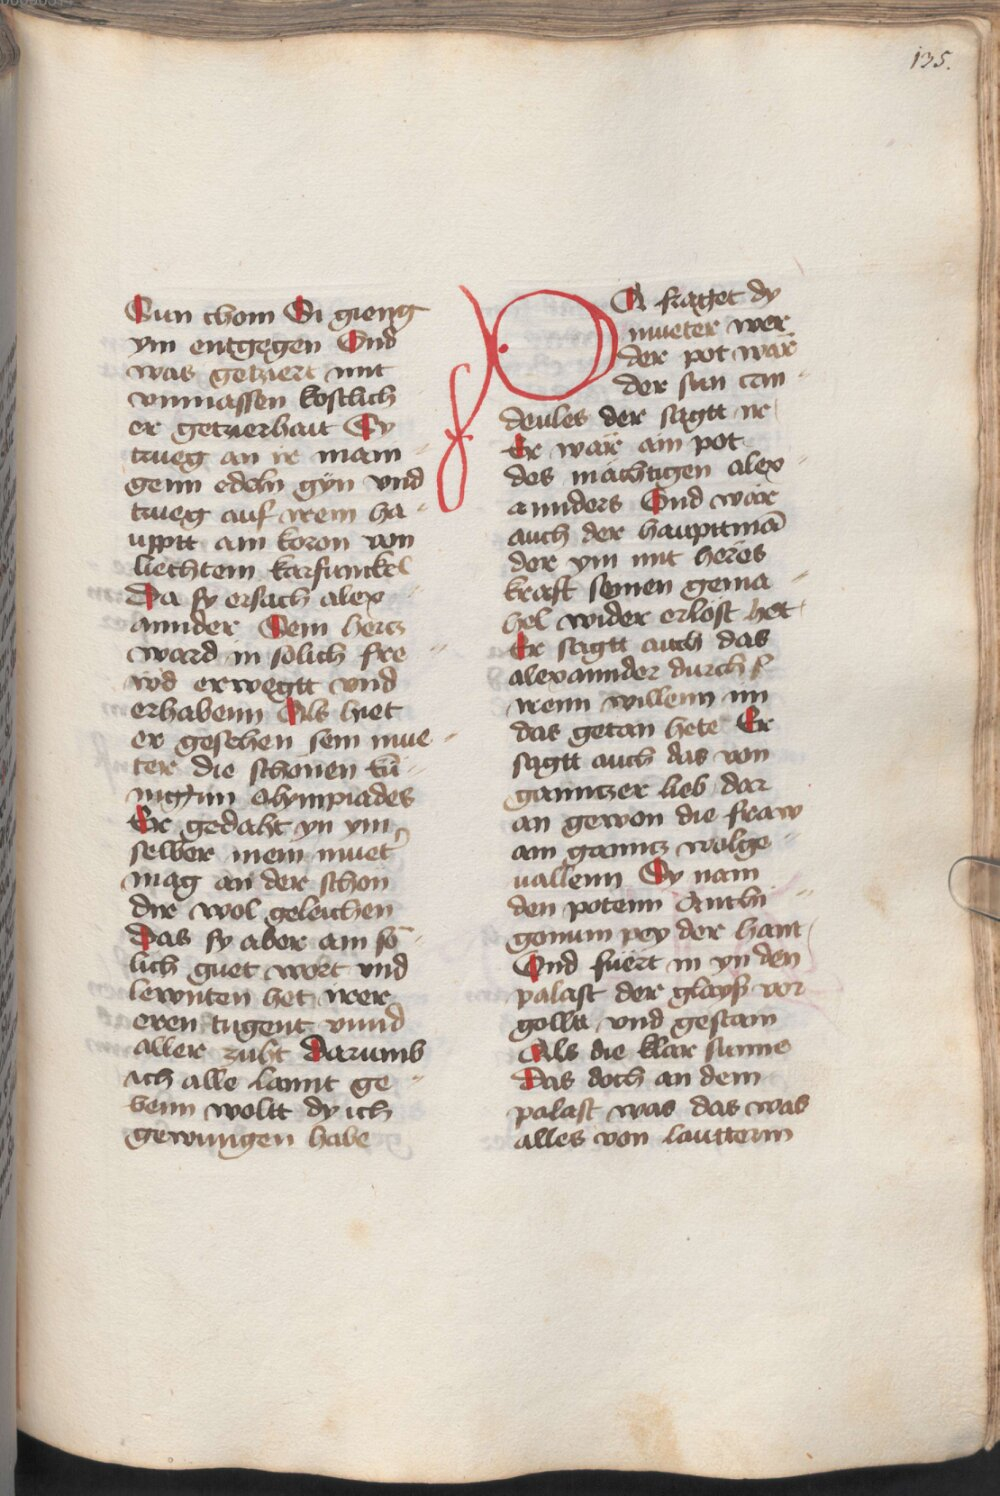 135.
Sun chom Si gieng
ym entgegen Vnd
was geziert mit
vnmassen kostlich
er getzierhait Sy
trueg an ir mani-
genn edeln gyn vnd
trueg auf irem ha-
upptt ain koron von
liechtem karfunckel
Da sy ersach alex
annder Sein hertz
ward in sölich fre-
wd erwegtt vnd
erhabenn Als hiet
er gesehen sein mue-
ter die schonen kü-
nigynn Olympiades
Er gedaht yn ym
selber mein muet
mag an der schon
dir wol geleichen
Das sy aber ain so-
lich guet wort vnd
lewnten het irer
eren tugent vnnd
aller zuht Darumb
ich alle lannt ge-
benn woltt dy ich
gewungen habe
DA fraget dy
mueter wer
der pot wär
der sun can-
deules der sagtt ir
Er wär ain pot
des mächtigen alex-
annders Vnd wär
auch der haupttmā
der ym mit heres
kraft seinen gema-
hel wider erlost het
Er sagtt auch das
alexannder durch
irenn willenn im
das getan hete Er
sagtt auch das von
ganntzer lieb dar
an gewon die fraw
ain ganntz wolge
uallenn Sy nam
den potenn Anthi-
gonum pey der hant
Vnd fuert in yn den
palast der glayß vor
golltt vnd gestain
Als die klar sunne
Das doch an dem
palast was das was
alles von lautterm